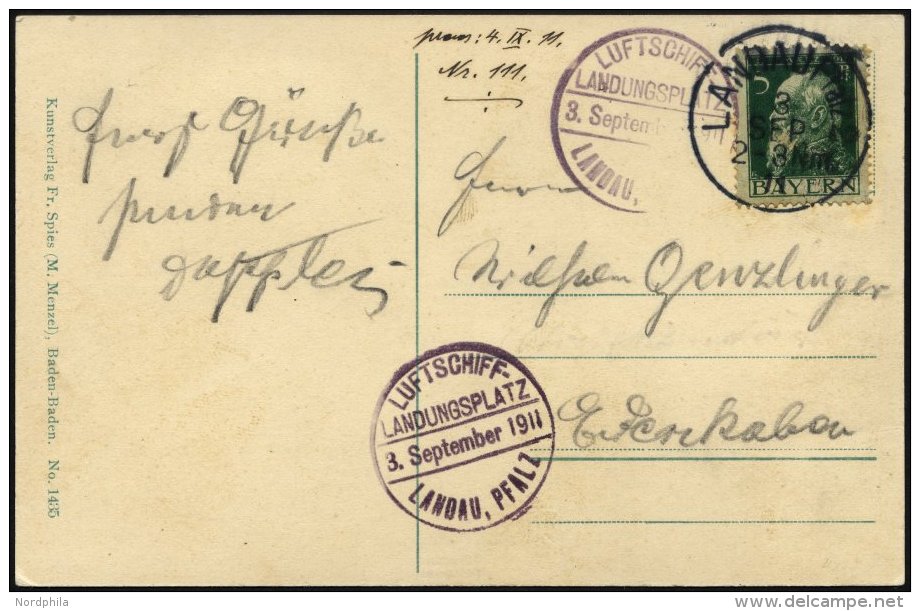 4. IX. 11.
Nr. 111.
LUFTSCHIFF-
LANDUNGSPLATZ
3. Septem
LANDAU,
LANDAU
3
SEP
2-3 Nm.
5
BAYERN
Kunstverlag Fr. Spies (M. Menzel), Baden-Baden. No. 1435
senden
Herrn
Wilhelm Genzlinger
Edenkoben
LUFTSCHIFF-
LANDUNGSPLATZ
3. September 1911
LANDAU, PFALZ
Nordphila
delcampe.net